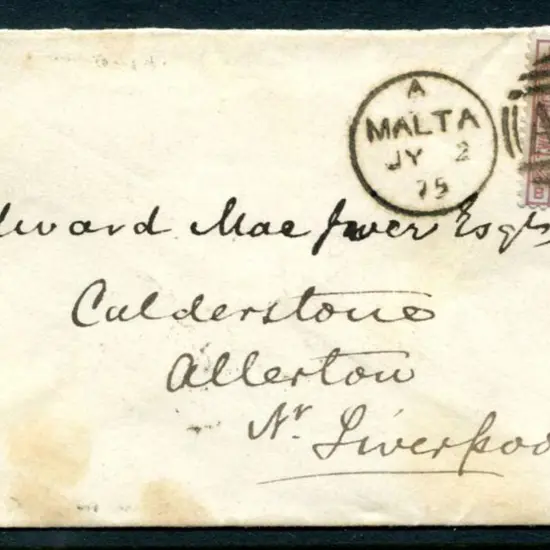 A
MALTA
JY 2
75
dward Mac Iver Esqre
Calderstone
Allerton
Nr. Liverpoo